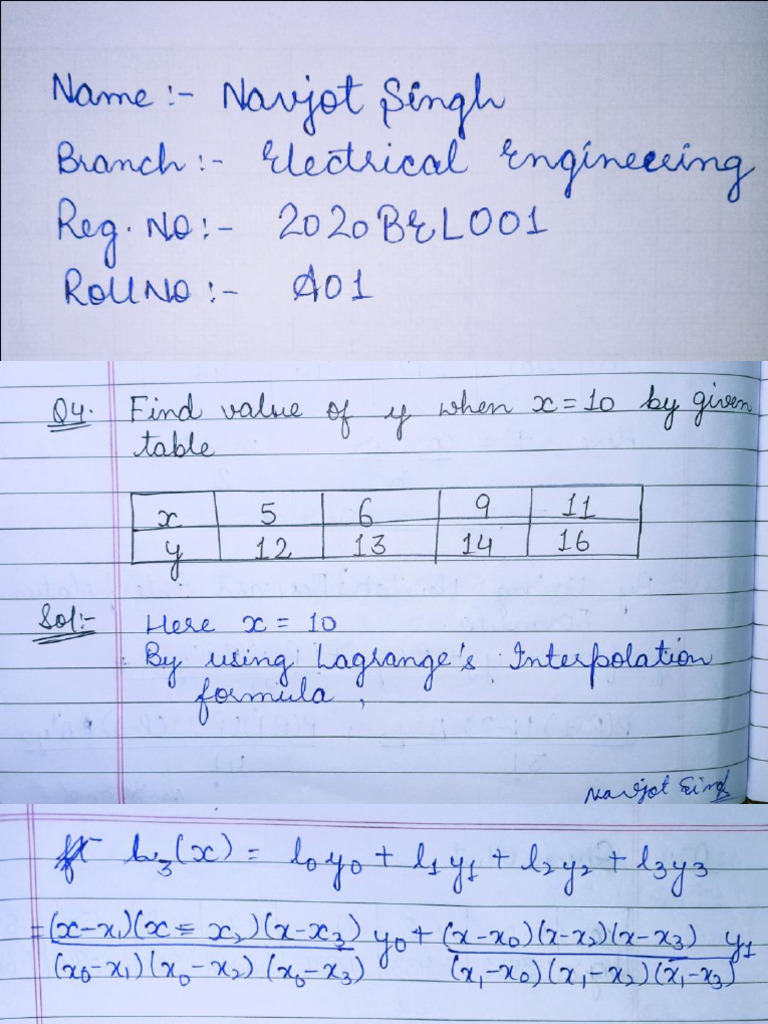 Name :- Navjot Singh
Branch :- Electrical Engineering
Reg. No :- 2020BEL001
Roll No :- A01
Q4. Find value of y when x = 10 by given
table
x 5 6 9 11
y 12 13 14 16
Sol:- Here x = 10
By using Lagrange's Interpolation
formula,
Navjot Singh
L₃(x) = l₀y₀ + l₁y₁ + l₂y₂ + l₃y₃
= (x-x₁)(x= x₂)(x-x₃) y₀ + (x-x₀)(x-x₂)(x-x₃) y₁
(x₀-x₁)(x₀-x₂)(x₀-x₃) (x₁-x₀)(x₁-x₂)(x₁-x₃)